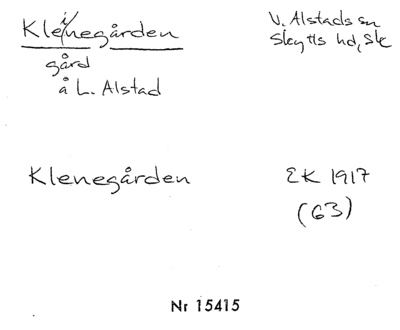 Kleinegården
V. Alstads sn
Skytts hd, Sk
gård
å L. Alstad
Klenegården
EK 1917
(63)
Nr 15415